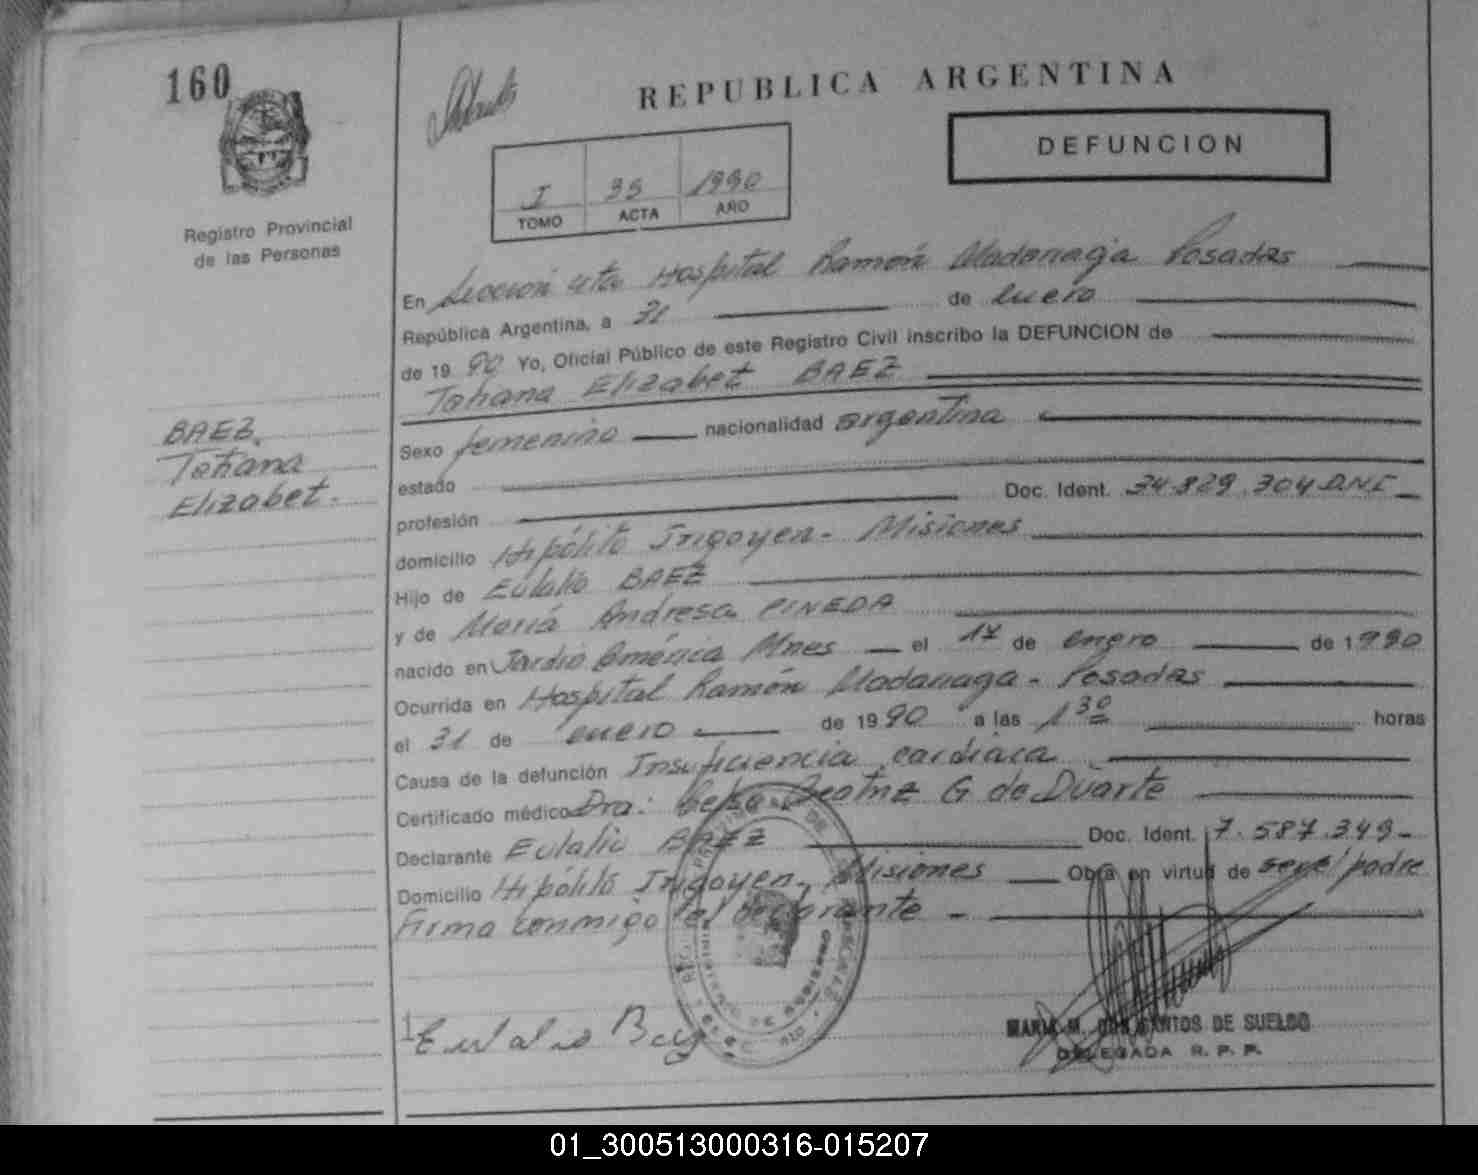 160
REPUBLICA ARGENTINA
DEFUNCION
I 35 1990
TOMO ACTA AÑO
Registro Provincial
de las Personas
En Sección 4ta Hospital Ramón Madariaga Posadas
República Argentina, a 31 de Enero
de 1990 Yo, Oficial Público de este Registro Civil inscribo la DEFUNCION de
Tatiana Elizabet BAEZ
BAEZ,
Tatiana
Elizabet.
Sexo femenino nacionalidad argentina
estado
profesión Doc. Ident. 34.829.304 DNI
domicilio Hipólito Irigoyen - Misiones
Hijo de Eulalio BAEZ
y de María Andresa PINEDA
nacido en Jardín América Mnes el 17 de enero de 1990
Ocurrida en Hospital Ramón Madariaga - Posadas
el 31 de enero de 1990 a las 1 30 horas
Causa de la defunción Insuficiencia cardiaca
Certificado médico Dra: Beatriz G de Duarte
Declarante Eulalio BAEZ Doc. Ident. 7.587.349-
Domicilio Hipólito Irigoyen - Misiones Obra en virtud de ser el padre
Firma conmigo el declarante -
Eulalio Baez
MARIA M. DOS SANTOS DE SUELDO
DELEGADA R. P. P.
01_300513000316-015207